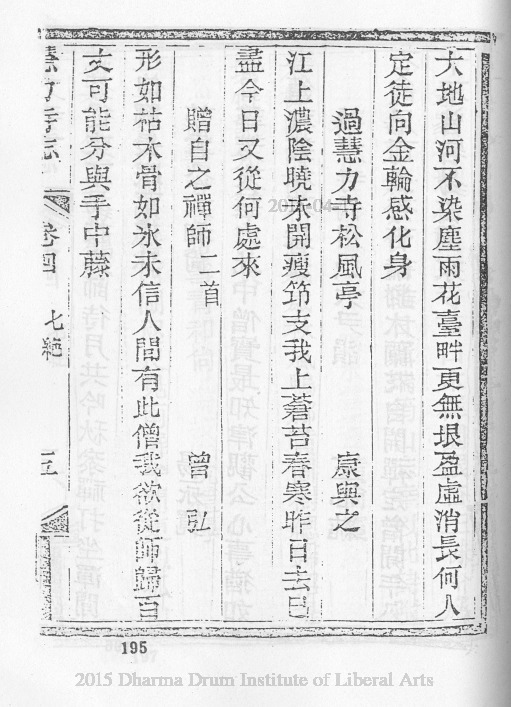 大地山河不染塵雨花臺畔更無垠盈虛消長何人
定徒向金輪感化身
過慧力寺松風亭 康與之
江上濃陰曉未開瘦筇支我上蒼苔春寒昨日去已
盡今日又從何處來
贈自之禪師二首 曾弘
形如枯木骨如氷未信人間有此僧我欲從師歸百
丈可能分與手中藤
慧力寺志 卷四 七絕 五
195
2015 Dharma Drum Institute of Liberal Arts